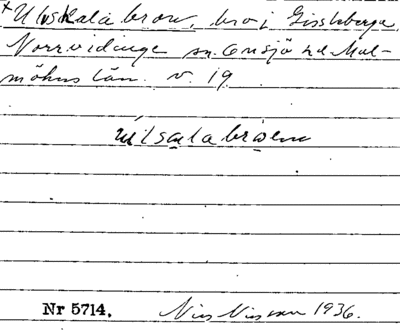 ×Ulvskala bron, bro i Gissleberga,
Norrvidinge sn. Onsjö hd Mal-
möhus län. v. 19
ulsalabröen
Nr 5714. Nils Nilsson 1936.